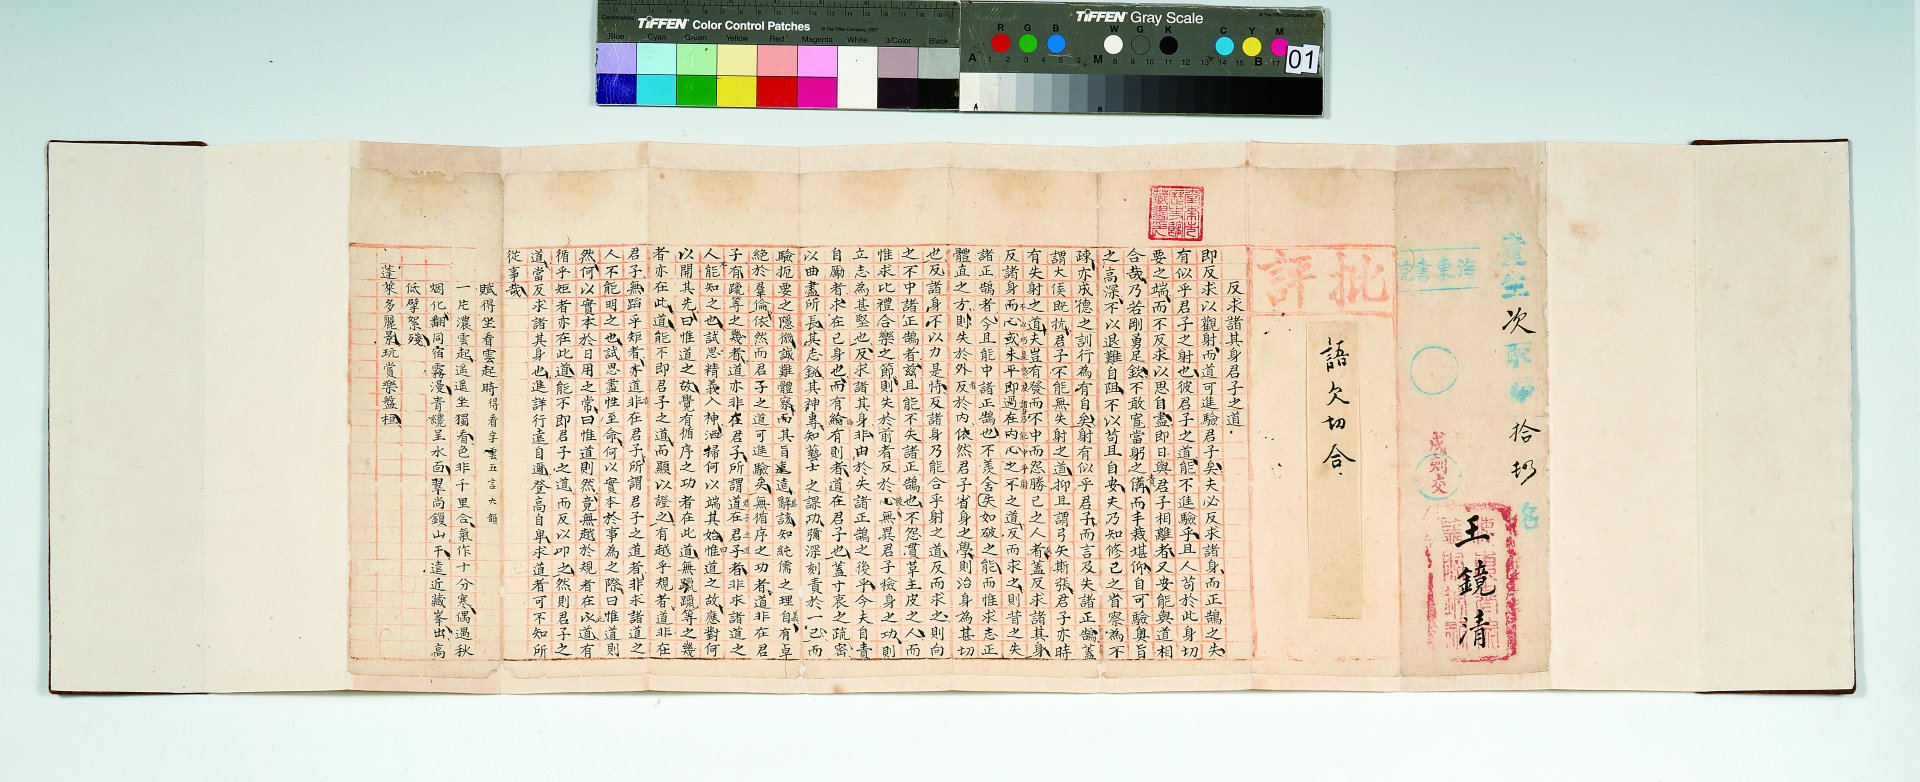 Centimetres
TIFFEN Color Control Patches
© The Tiffen Company, 2007
Blue Cyan Green Yellow Red Magenta White 3/Color Black
TIFFEN Gray Scale
© The Tiffen Company, 2007
R G B W G K C Y M
A 1 2 3 4 5 6 M 8 9 10 11 12 13 14 15 B 17
01
童生次取
拾
名
海東書院
戌刻交
王鏡清
批評
語欠切合
反求諸其身君子之道
即反求以觀射而道可進驗君子矣夫必反求諸身而正鵠之失
有似乎君子之射也彼君子之道能不進驗乎且人苟於此身切
要之端而不反求以思自盡即日與君子相離者又安能與道相
合哉乃若剛勇足欽不敢寬當躬之備而丰裁堪仰自可驗輿旨
之高深不以退難自阻不以苟且自安夫乃知修己之省察為不
疎亦成德之訓行為有自矣射有似乎君子而言及失諸正鵠蓋
謂大侯既抗君子不能無失射之道抑且謂弓矢斯張君子亦時
有失射之道夫豈有發而不中而怨勝己之人者蓋反求諸其身
反諸身而心或未平即過在內心之不之道反而求之則昔之失
諸正鵠者今且能中諸正鵠也不羨舍矢如破之能而惟求志正
體直之方則失於外反於內依然君子省身之學則治身為甚切
也反諸身不以力是恃反諸身乃能合乎射之道反而求之則向
之不中諸正鵠者茲且能不失諸正鵠也不怨貫革主皮之人而
惟求比禮合樂之節則失於前者反於心無異君子檢身之功則
立志為甚堅也反求諸其身非由於失諸正鵠之後乎今夫自責
自勵者求在己身也而有綸有則者道在君子也蓋寸衷之疏密
以曲盡所長其志銳其神專知藝士之課功彌深刻責於一己而
驗扼要之隱微誠難體察而其旨遠辭該知純儒之理自有卓
絕於羣倫依然而君子之道可進驗矣無循序之功者道非在君
子有躐等之幾者道亦非在君子所謂道在君子者非求諸道之
人能知之也試思精義入神洒掃何以端其始惟道之故應對何
以開其先曰惟道之故覺有循序之功者在此道無躐躐等之幾
者亦在此道能不即君子之道而顯以證之有越乎規者道非在
君子無蹈乎矩者亦道非在君子所謂君子之道者非求諸道之
人不能明之也試思盡性至命何以實本於事為之際曰惟道則
然何以實本於日用之常曰惟道則然竟無越於規者在以道有
循乎矩者亦在此道能不即君子之道而反以叩之然則君子之
道當反求諸其身也進詳行遠自邇登高自卑求道者可不知所
從事哉
賦得坐看雲起時得看字雲五言六韻
一片濃雲起遙遙坐獨看色非千里合氣作十分寒偶過秋
烟化翻同宿霧漫青纔呈水面翠尚鎖山干遠近藏峯出高
低擘絮殘
蓬萊多麗景玩賞樂盤桓